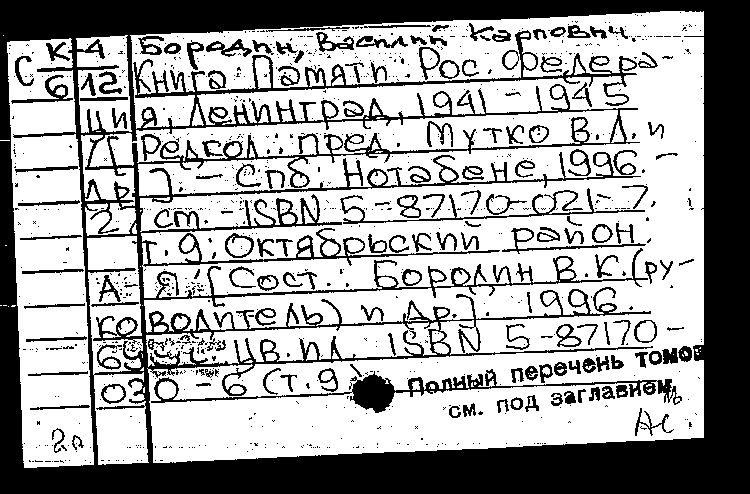 К-4 Бородин, Василий Карпович.
С 6 12 Книга Памяти: Рос. Федера-
ция, Ленинград, 1941-1945
/[Редкол.: пред. Мутко В.Л. и
др.]. - Спб: Нотабене, 1996. -
ст. - ISBN 5-87170-021-7.
т.9: Октябрьский район:
А-Я, [Сост.: Бородин В.К. (ру-
ководитель) и др.]. 1996.
цв. ил. ISBN 5-87170-
030-6 (т.9)
Полный перечень томов
см. под заглавием